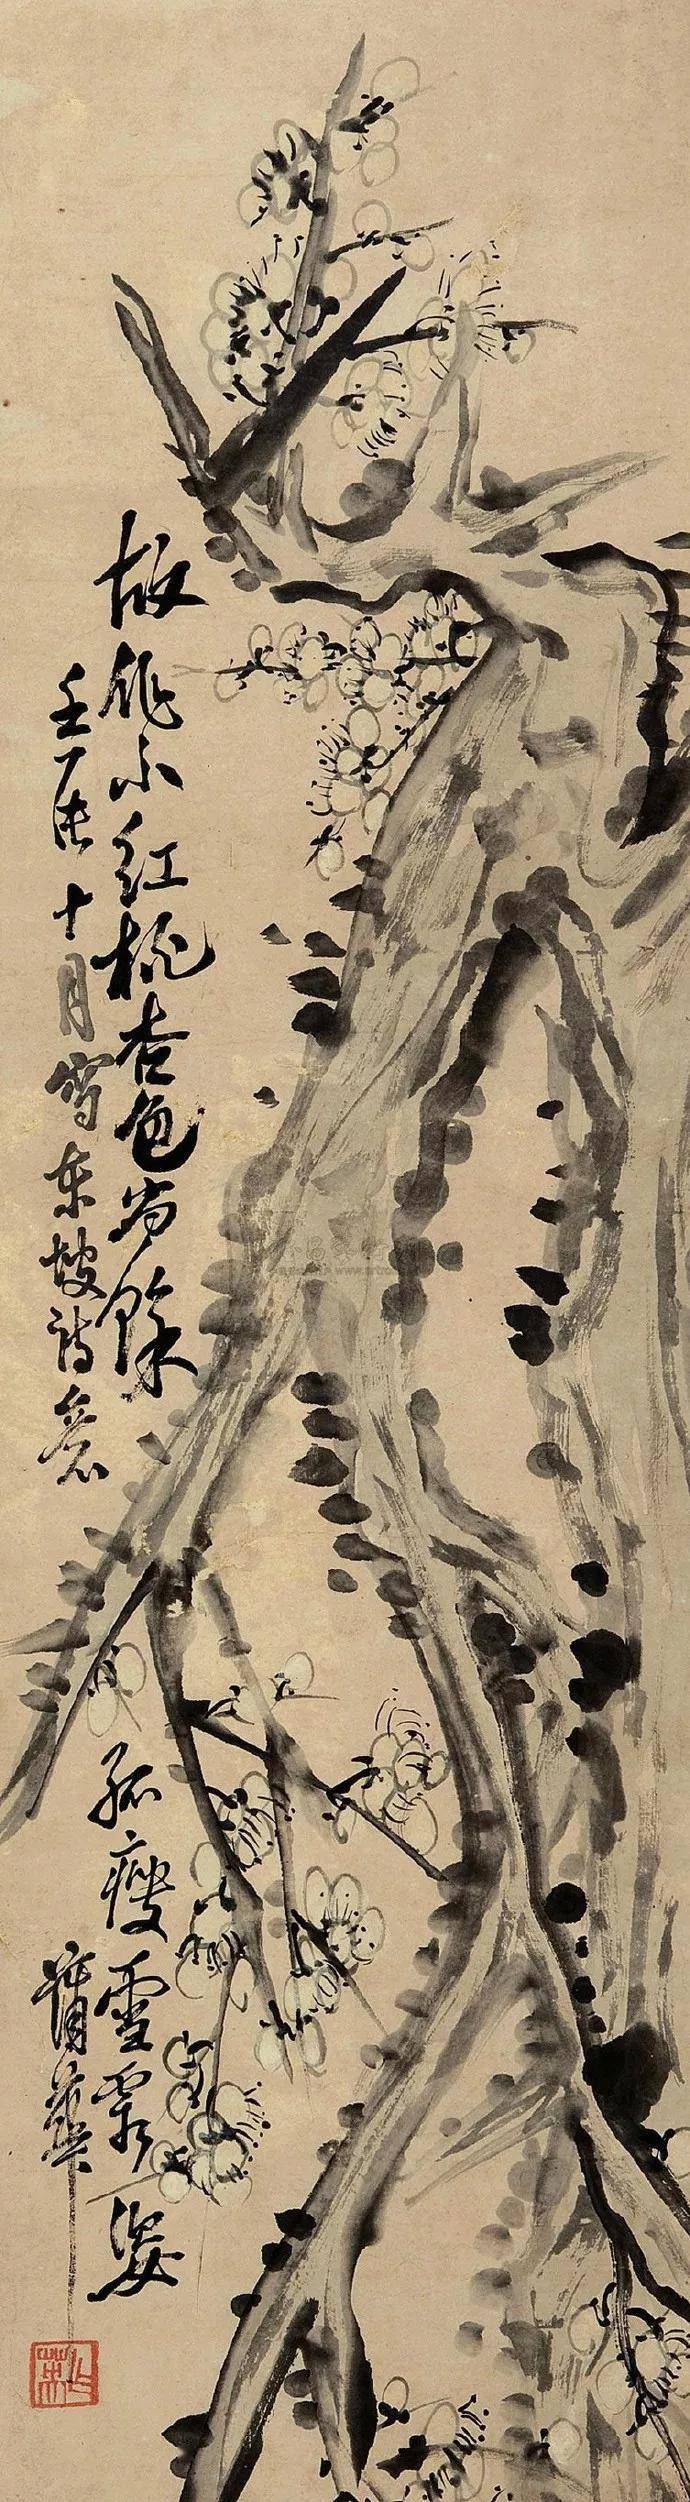 故作小红桃杏色尚馀
孤瘦雪霜姿
壬辰十月写东坡诗意
蒲华